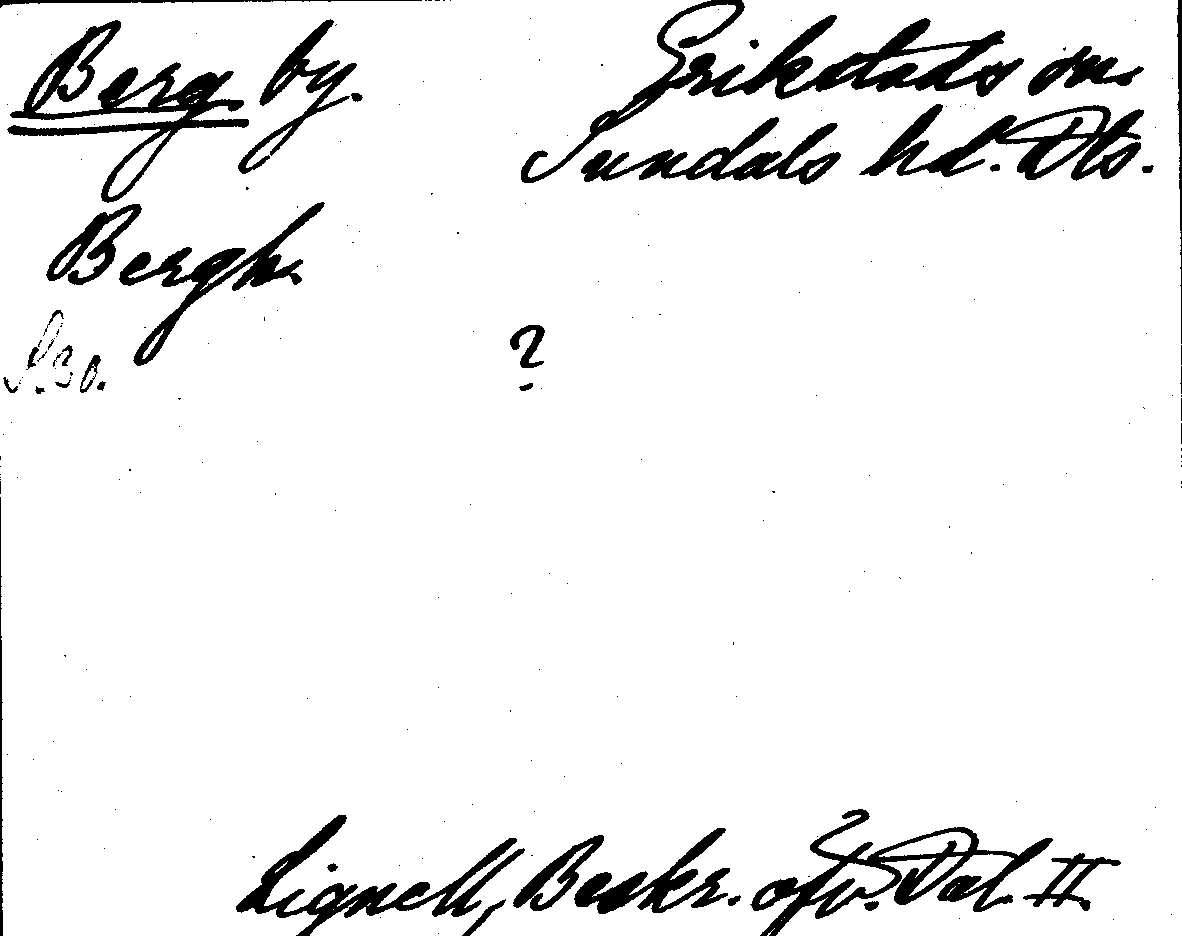 Berg. by. Erikstads sn.
Sundals hd. Dls.
Bergh.
S. 30. ?
Lignell, Beskr. öfv. Dal. II.